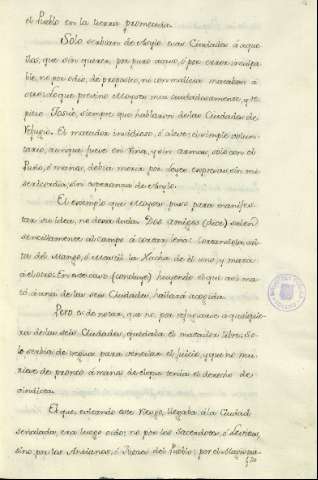 el Pueblo en la tierra prometida.
Solo serbian de Asylo esas Ciudades á aque
llos, que sin querer, por puro acaso, ó por error inculpa
ble, no por odio, de proposito, ni con malicia mataban á
otros: lo que previno Moyses mui cuidadosamente, y re
pitió Josué, siempre que hablaron de las Ciudades de
Refugio. El matador insidioso, ó aleve, el simple volun
tario, aunque fuese en riña, y sin armas, solo con el
Puño, ó manos, debia morir por leyes expresas, sin mi
sericordia, sin esperanza de Asylo.
El exemplo que Moyses puso para manifes
tar su idea, no dexa duda. Dos amigos (dice) salen
sencillamente al campo á cortar leña:
del Mango, ó el Hacha de el uno, y mata
á el otro: En este caso (concluye) huyendo el que asi ma
tó á una de las seis Ciudades, hallará acogida.
Pero es de notar, que no por refugiarse a qualquie
ra de las seis Ciudades, quedaba el matador libre: So
lo serbia de regular para ventilar el juicio, y que no mu
riese de pronto á manos de el que tenia el derecho de
vindicta.
El que, evitando este riesgo, llegaba á la Ciudad
señalada, era luego oido; no por los Sacerdotes, ó Levitas,
sino por los Ancianos, ó Jueces del Pueblo; por el Magistra